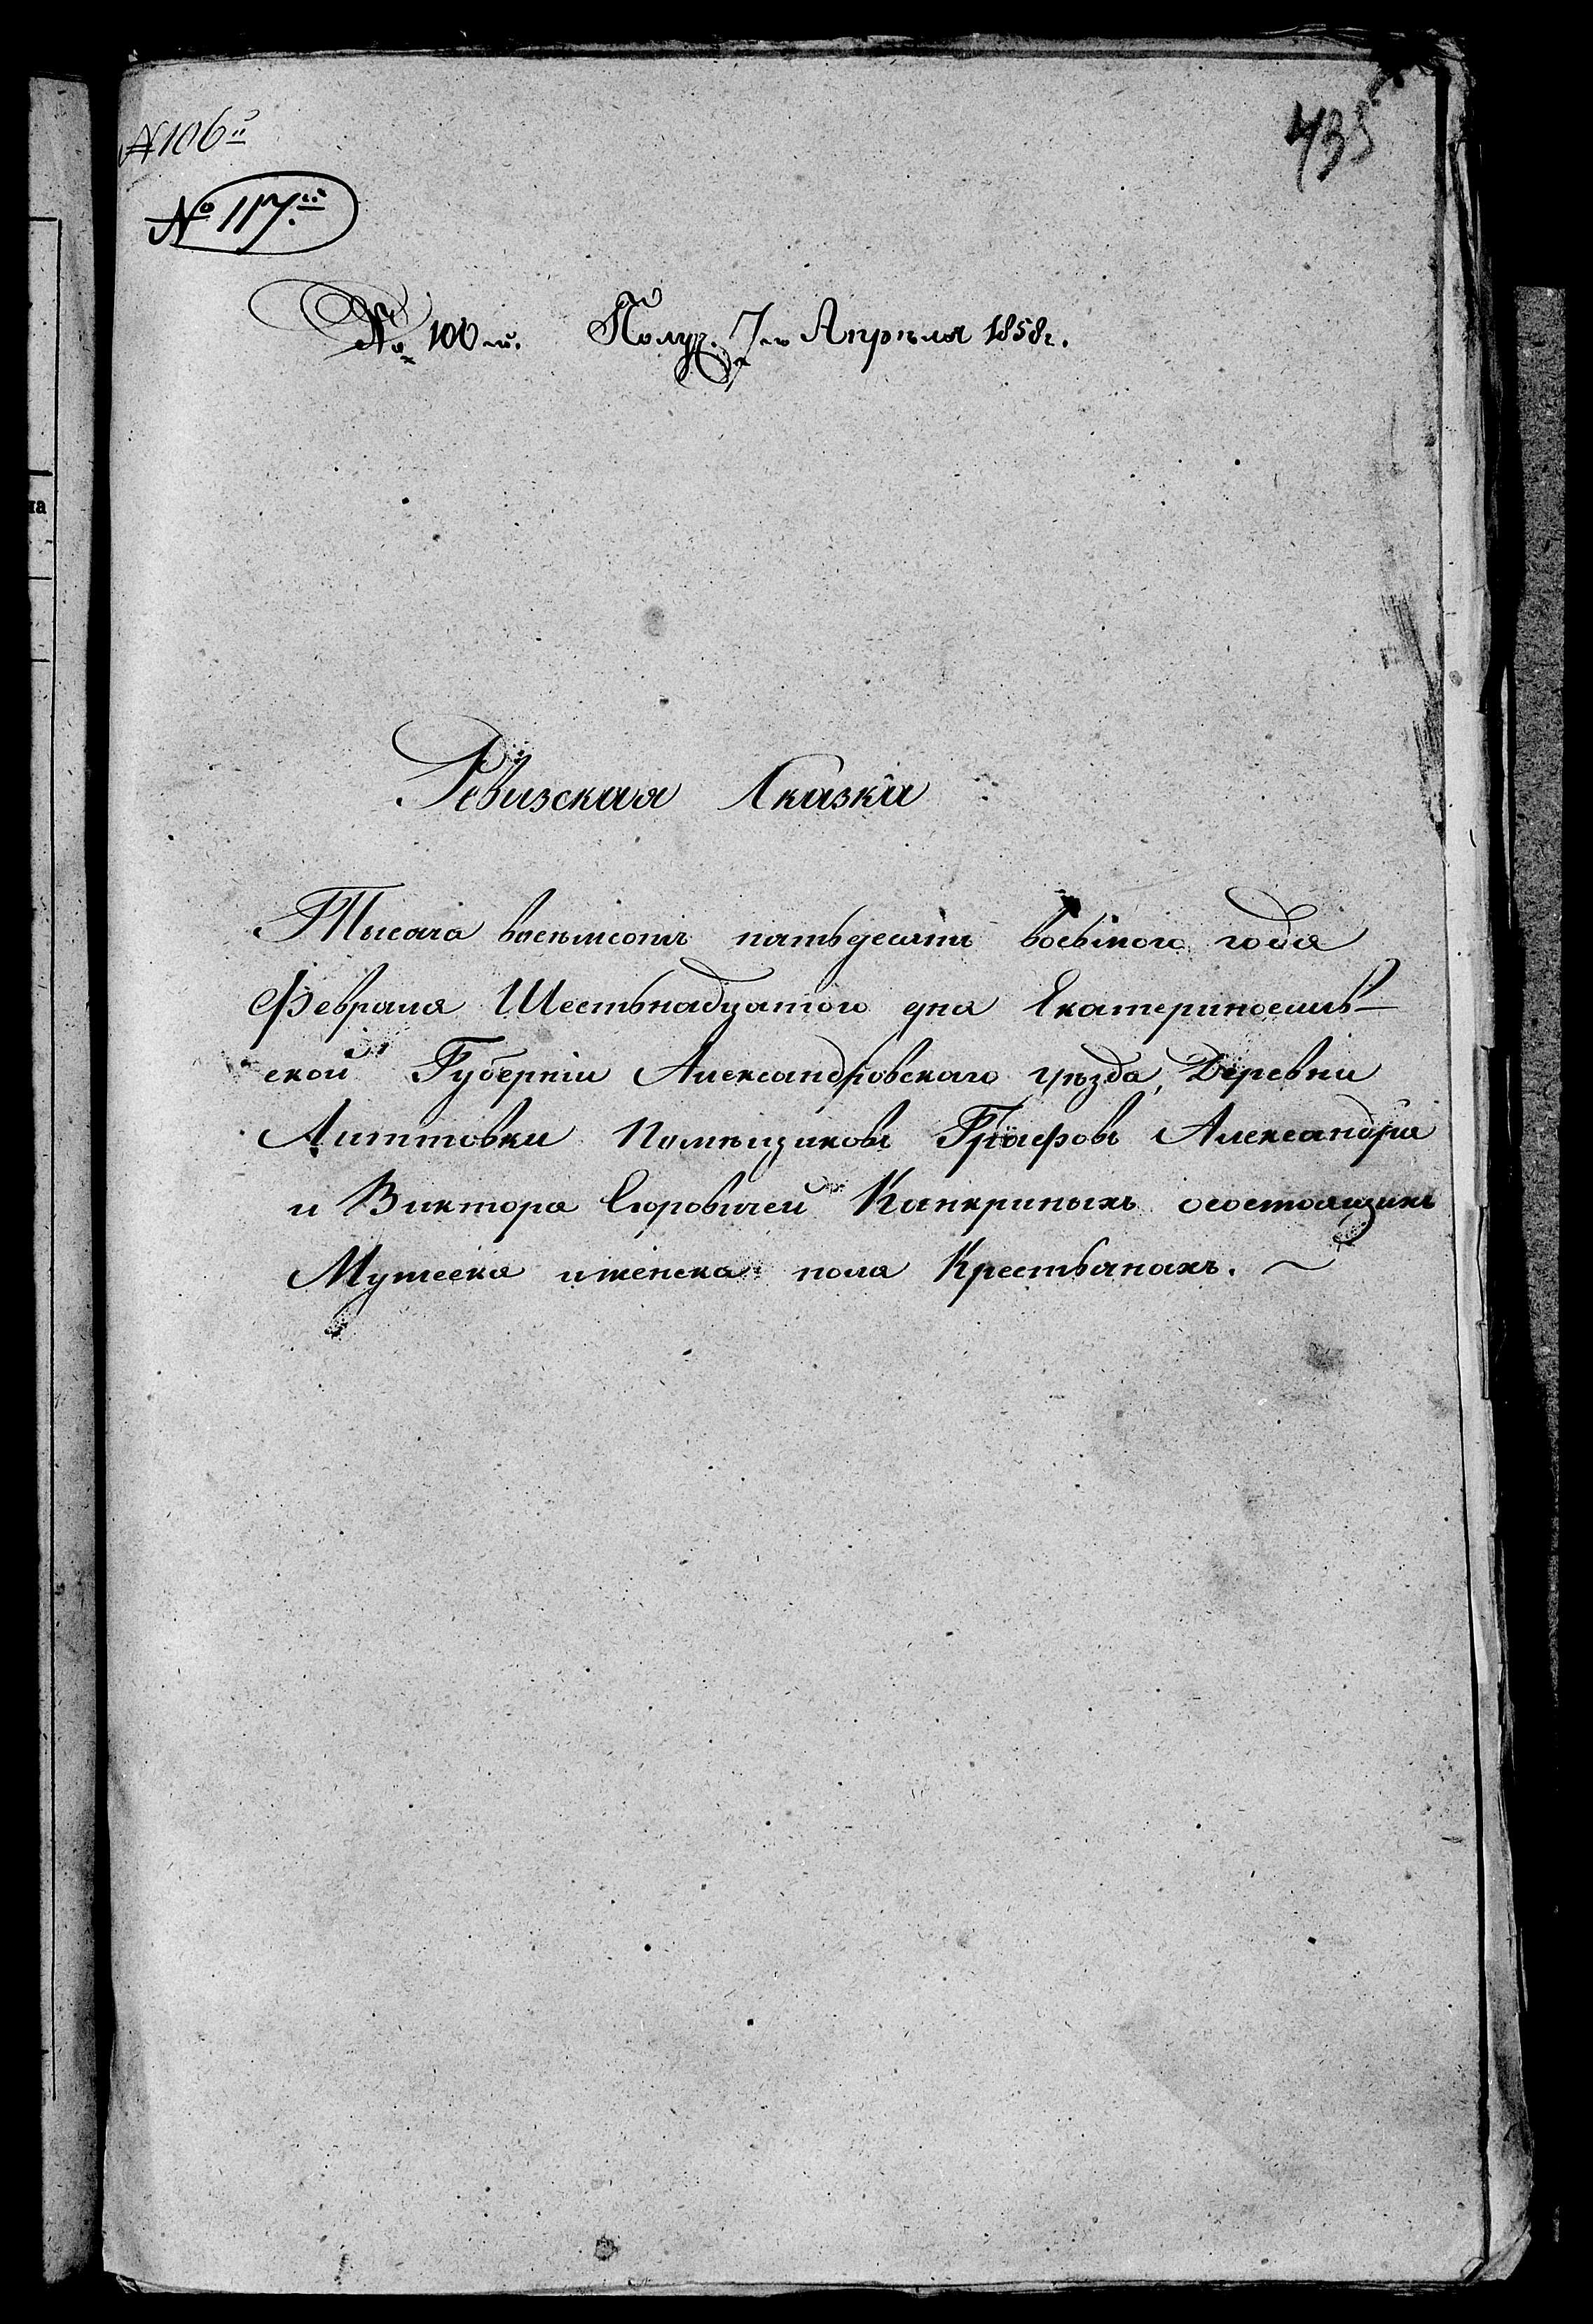 № 106й
435
№ 117.й
№ 100й. Получ. 7го Апрѣля 1858г.
Ревизская Сказка
Тысяча восемьсотъ пятьдесятъ восьмого года
Февраля Шестьнадцатого дня Екатеринослав-
ской Губерніи Александровского уѣзда, Деревни
Помѣщиковъ Графовъ Александра
и Виктора Егоровичей Канкриныхъ осостоящихъ
Мужеска иженска пола Крестьянахъ. ~
на